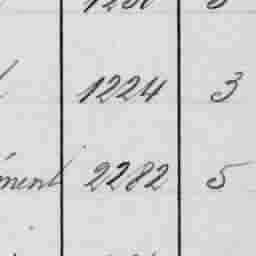 1224 3
ment 2282 5